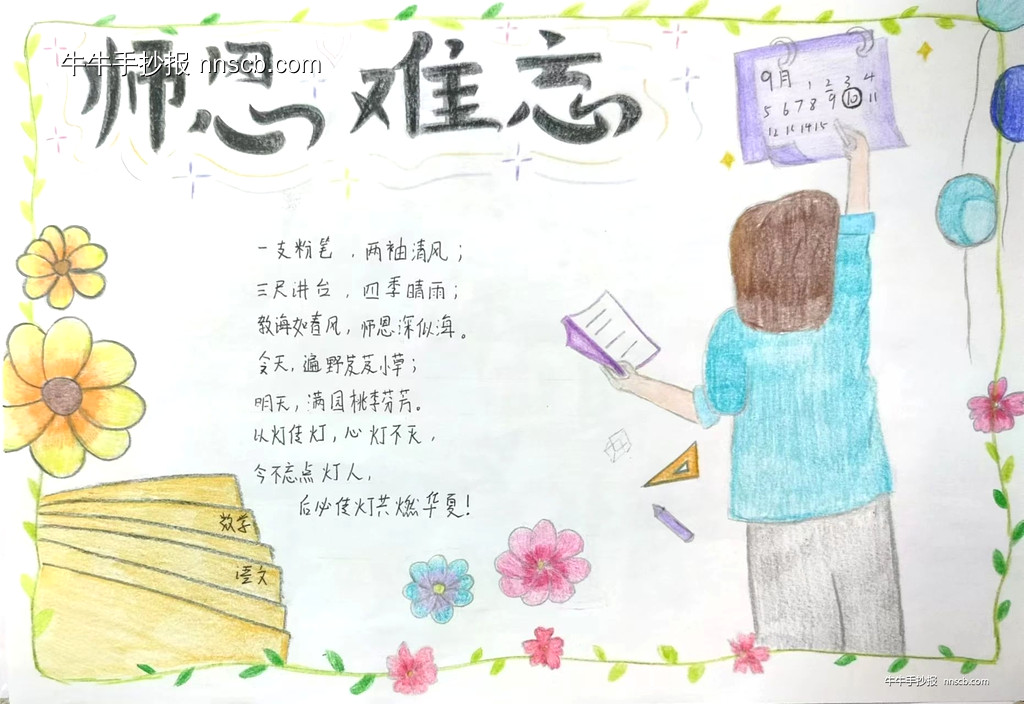 牛牛手抄报 nnscb.com
师恩难忘
9月 1 2 3 4
5 6 7 8 9 10 11
12 13 14 15
一支粉笔，两袖清风；
三尺讲台，四季晴雨；
教诲如春风，师恩深似海。
今天，遍野芨芨小草；
明天，满园桃李芬芳。
以灯传灯，心灯不灭，
今不忘点灯人，
后必使灯共燃华夏！
数学
语文
牛牛手抄报 nnscb.com